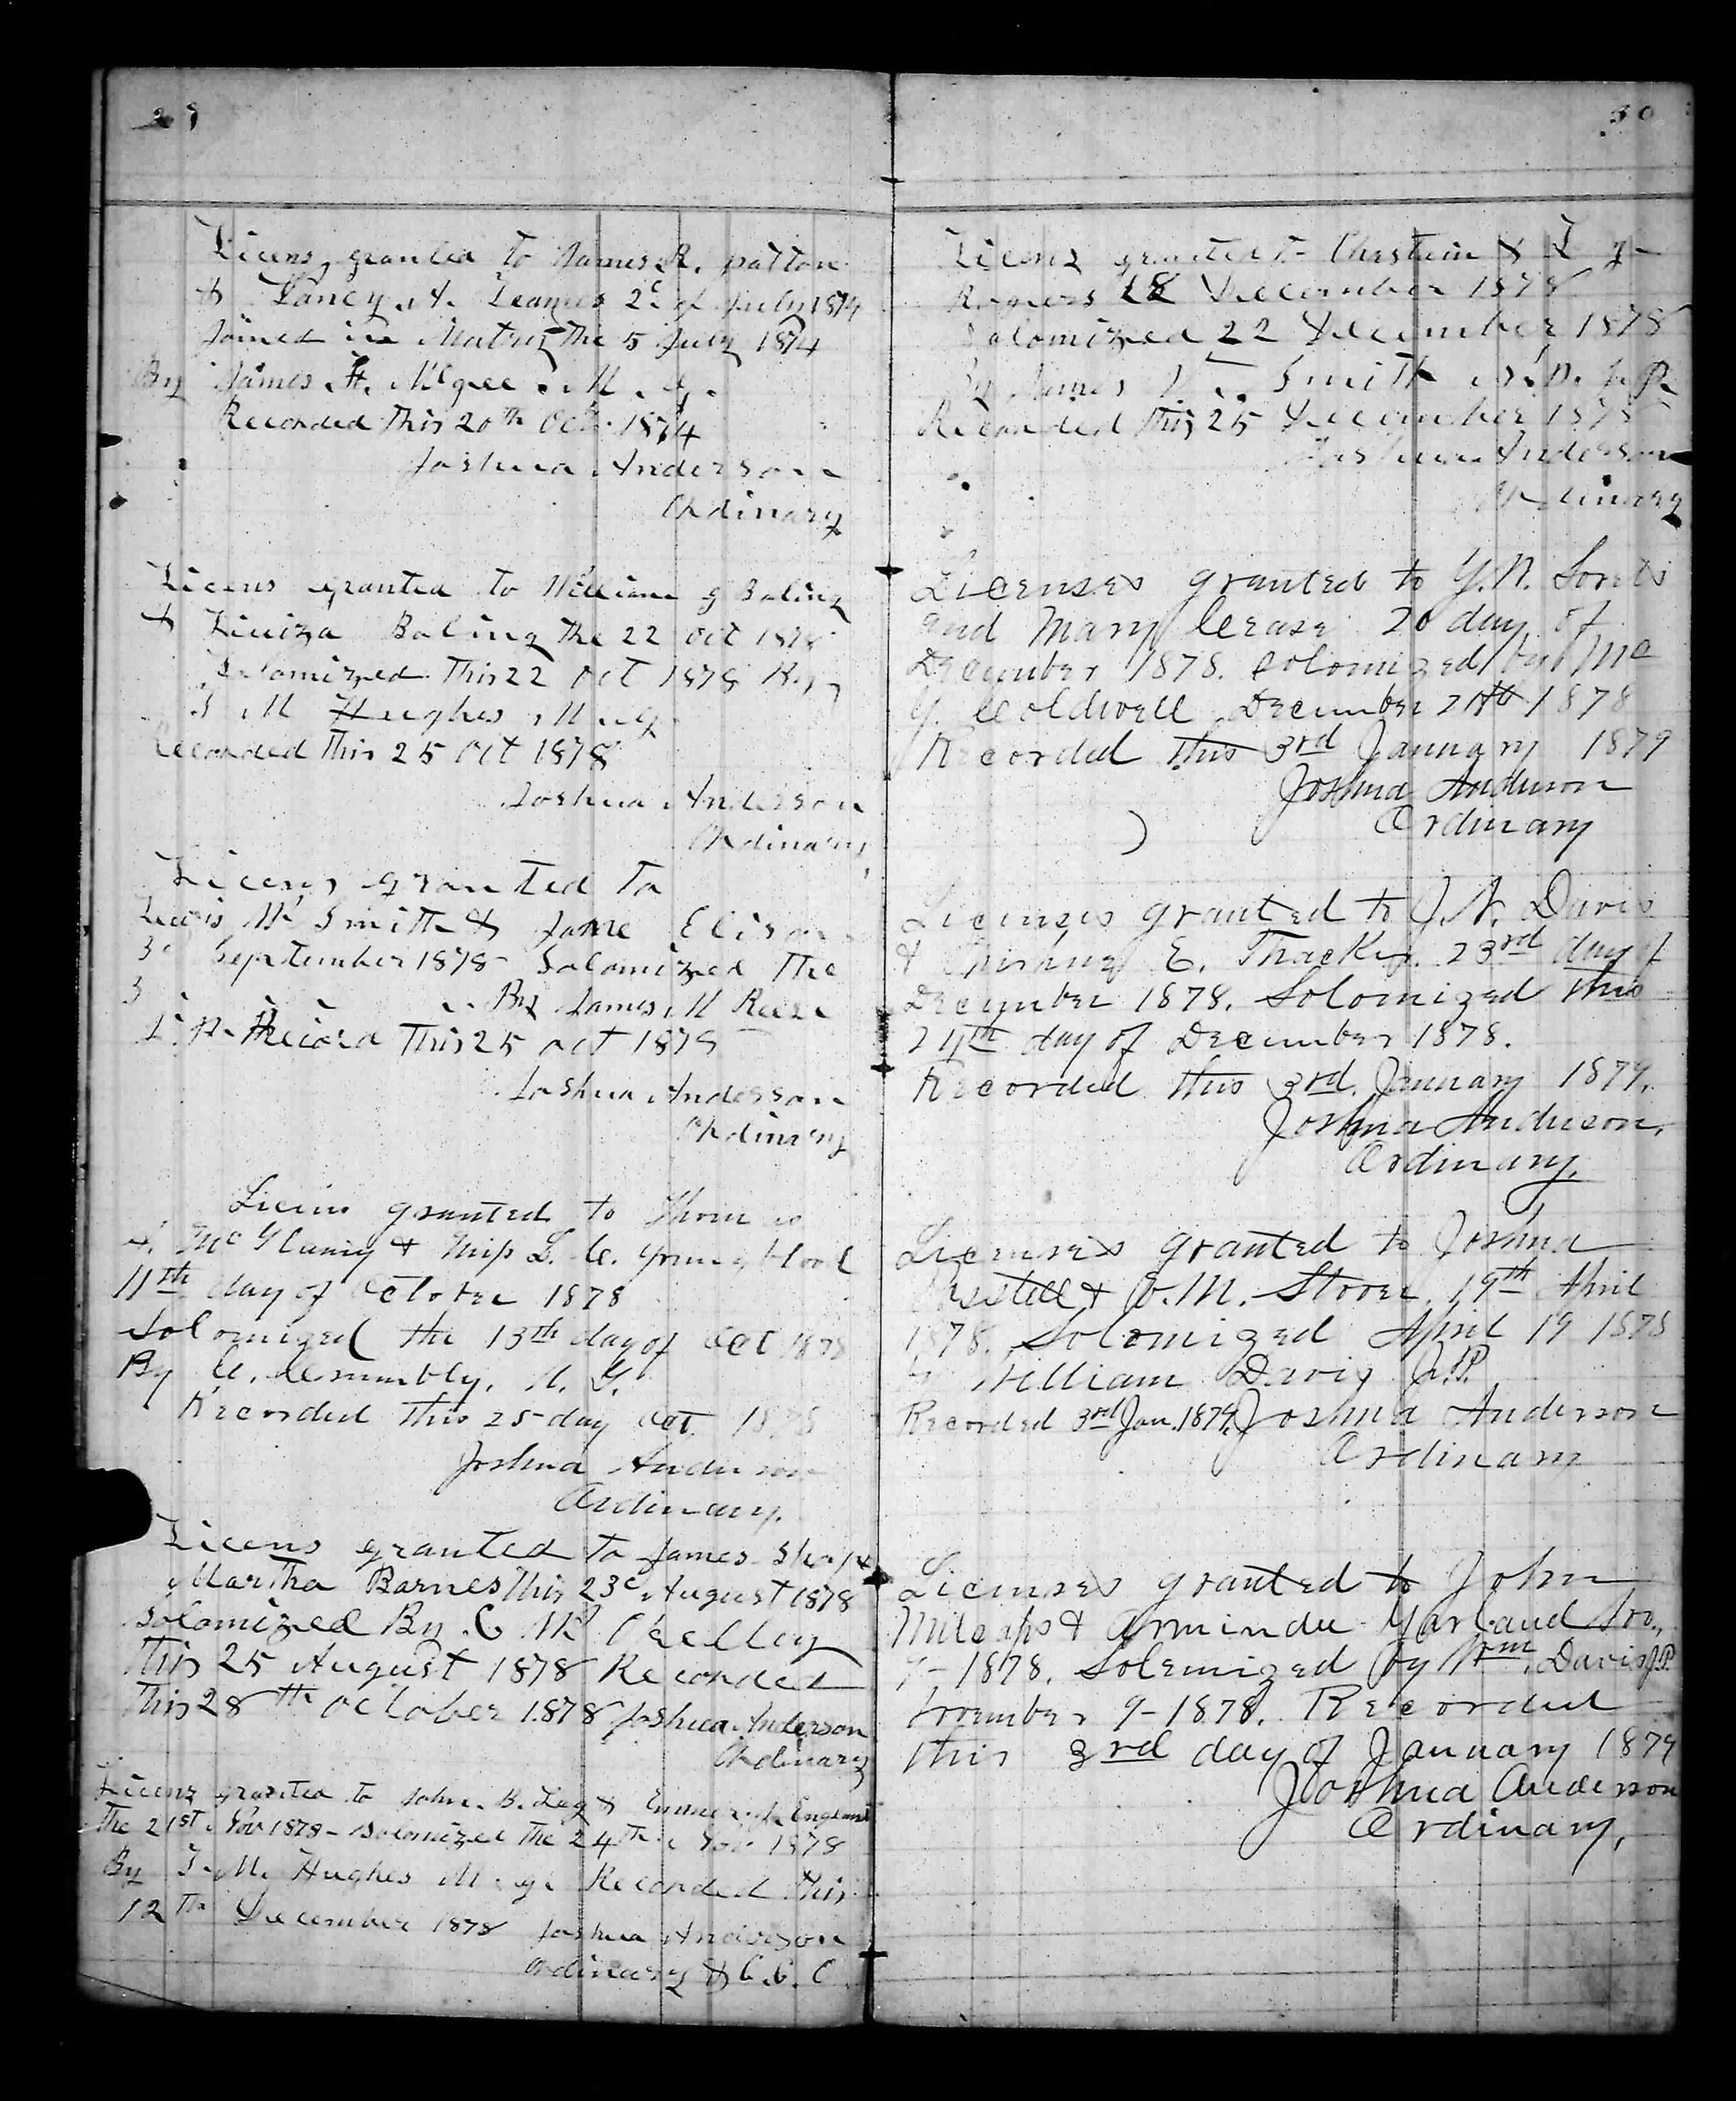 29
Licens granted to James R. patton
& Nancy A. Leames 2d of July 1874
Joined in Matry the 5 July 1874
By James H. Mcgee M. g.
Recorded This 20th Oct 1874
Joshua Anderson
Ordinary
Licens granted to William g Baling
& Baling the 22 Oct 1878
Solomized This 22 Oct 1878 By
J M Hughes M. g.
Recorded This 25 Oct 1878
Joshua Anderson
Ordinary
Licens granted to
Lewis W Smith & Jane Elison
3d September 1878 Solomized The
3 By James M Reese
J. P. Record This 25 Oct 1878
Joshua Anderson
Ordinary
Licens granted to Thomas
& Miss L. C. Youngblood
11th day of October 1878
Solomized the 13th day of Oct 1878
By M. G.
Recorded this 25 day Oct. 1878
Joshua Anderson
Ordinary.
Licens granted to James &
Martha Barnes This 23d August 1878
Solomized By C W Kelley
This 25 August 1878 Recorded
This 28th October 1878 Joshua Anderson
Ordinary
Licens granted to John B. Lag & England
The 21st Nov 1878 - Solomized the 24th Nov 1878
By J. M. Hughes M. g. Recorded this
12th December 1878 Joshua Anderson
Ordinary & C. C. C
30
Licens granted to &
Rogers 18 December 1878
Solomized 22 December 1878
By James Smith J. P.
Recorded This 25 December 1878
Joshua Anderson
Ordinary
Licenses granted to Y. N.
and Mary Crase 20 day of
December 1878. Solomized by Mc
Y. Coldwell December 20th 1878
Recorded this 3rd January 1879
Joshua Anderson
Ordinary
Licenses granted to J. N. Davis
& E. Thacker. 23rd day of
December 1878. Solomized this
24th day of December 1878.
Recorded this 3rd January 1879.
Joshua Anderson,
Ordinary.
Licenses granted to Joshua
& M. Stover 19th April
1878. Solomized April 19 1878
by William Davis J. P.
Recorded 3rd Jan. 1879. Joshua Anderson
Ordinary
Licenses granted to John
Milsaps & Arminda Garland Nov.,
9 - 1878. Solemized by Wm. Davis J.P.
November 9 - 1878. Recorded
this 3rd day of January 1879
Joshua Anderson
Ordinary,